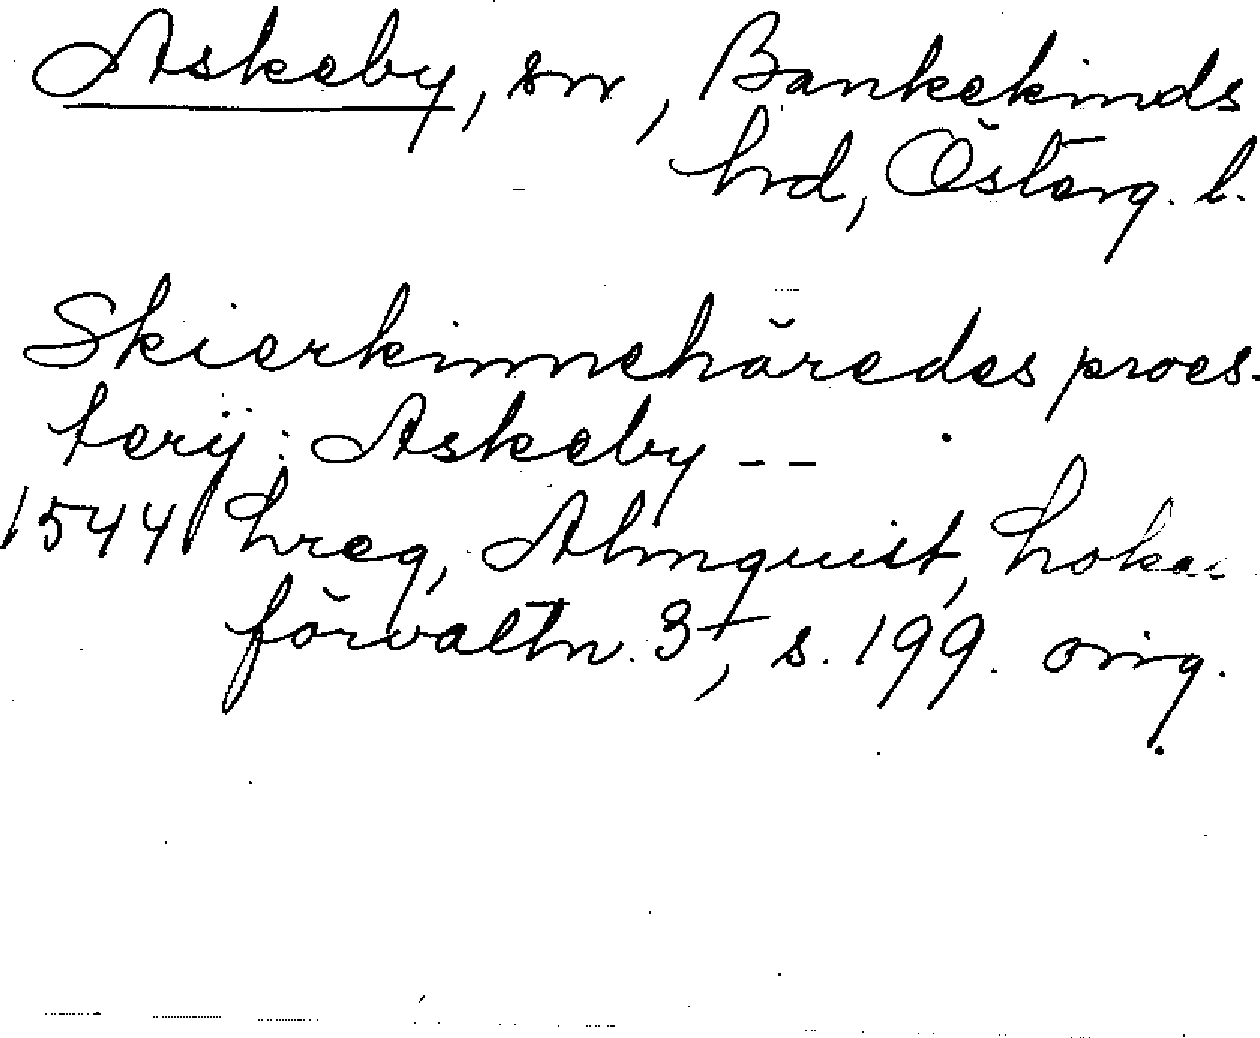 Askeby, sn, Bankekinds
hd, Österg. l.
Skierkinnehäredes proes-
terij: Askeby --
1544 hreg, Almquist, Lokal
förvaltn. 3, s. 199. orig.